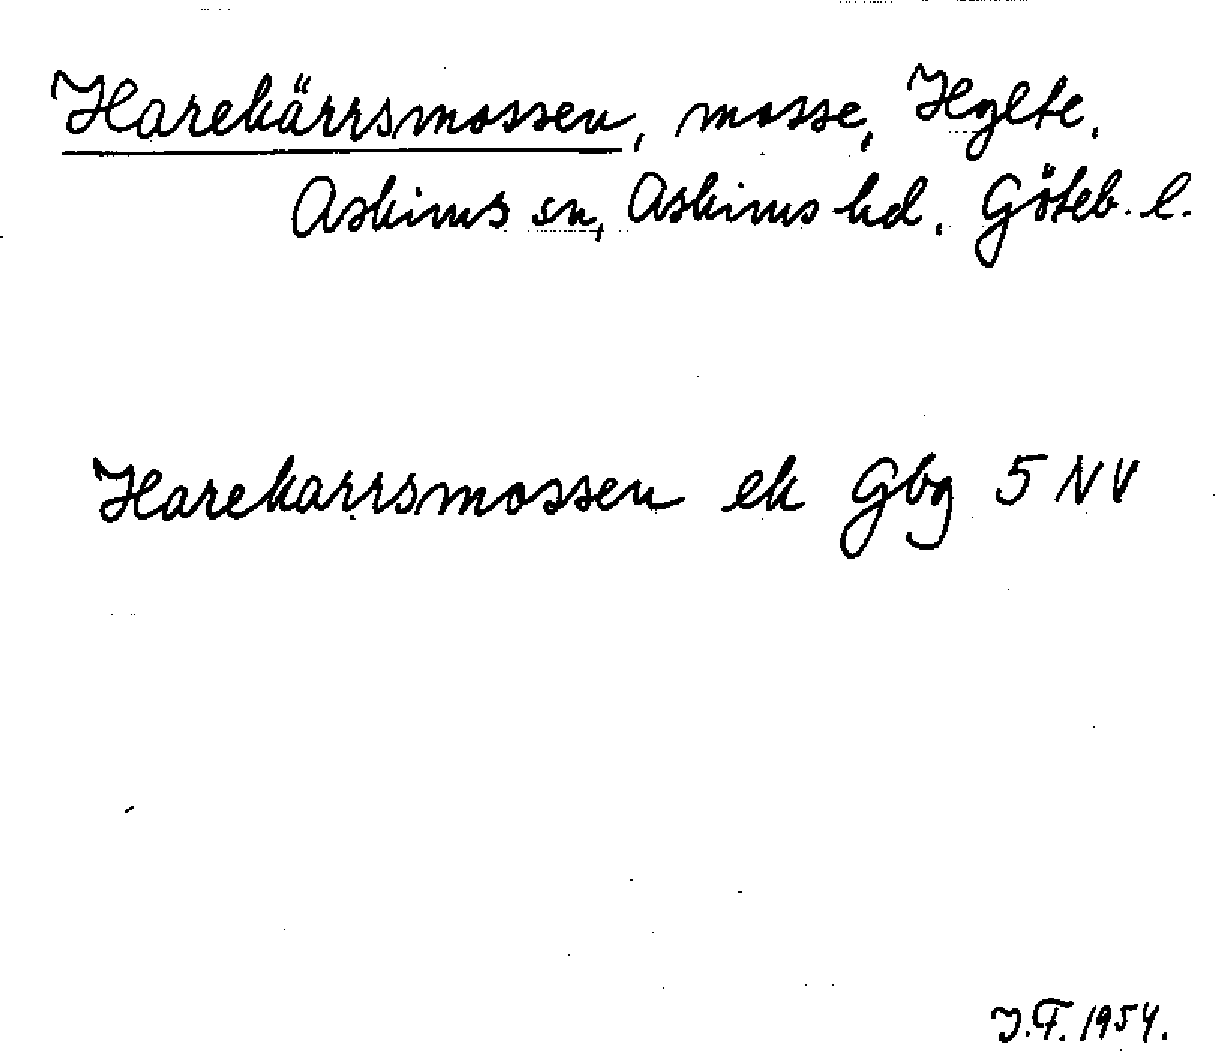 Harekärrsmossen, mosse, Hylte.
Askims sn, Askims hd. Göteb. l.
Harekarrsmossen ek Gbg 5 NV
J.F. 1954.